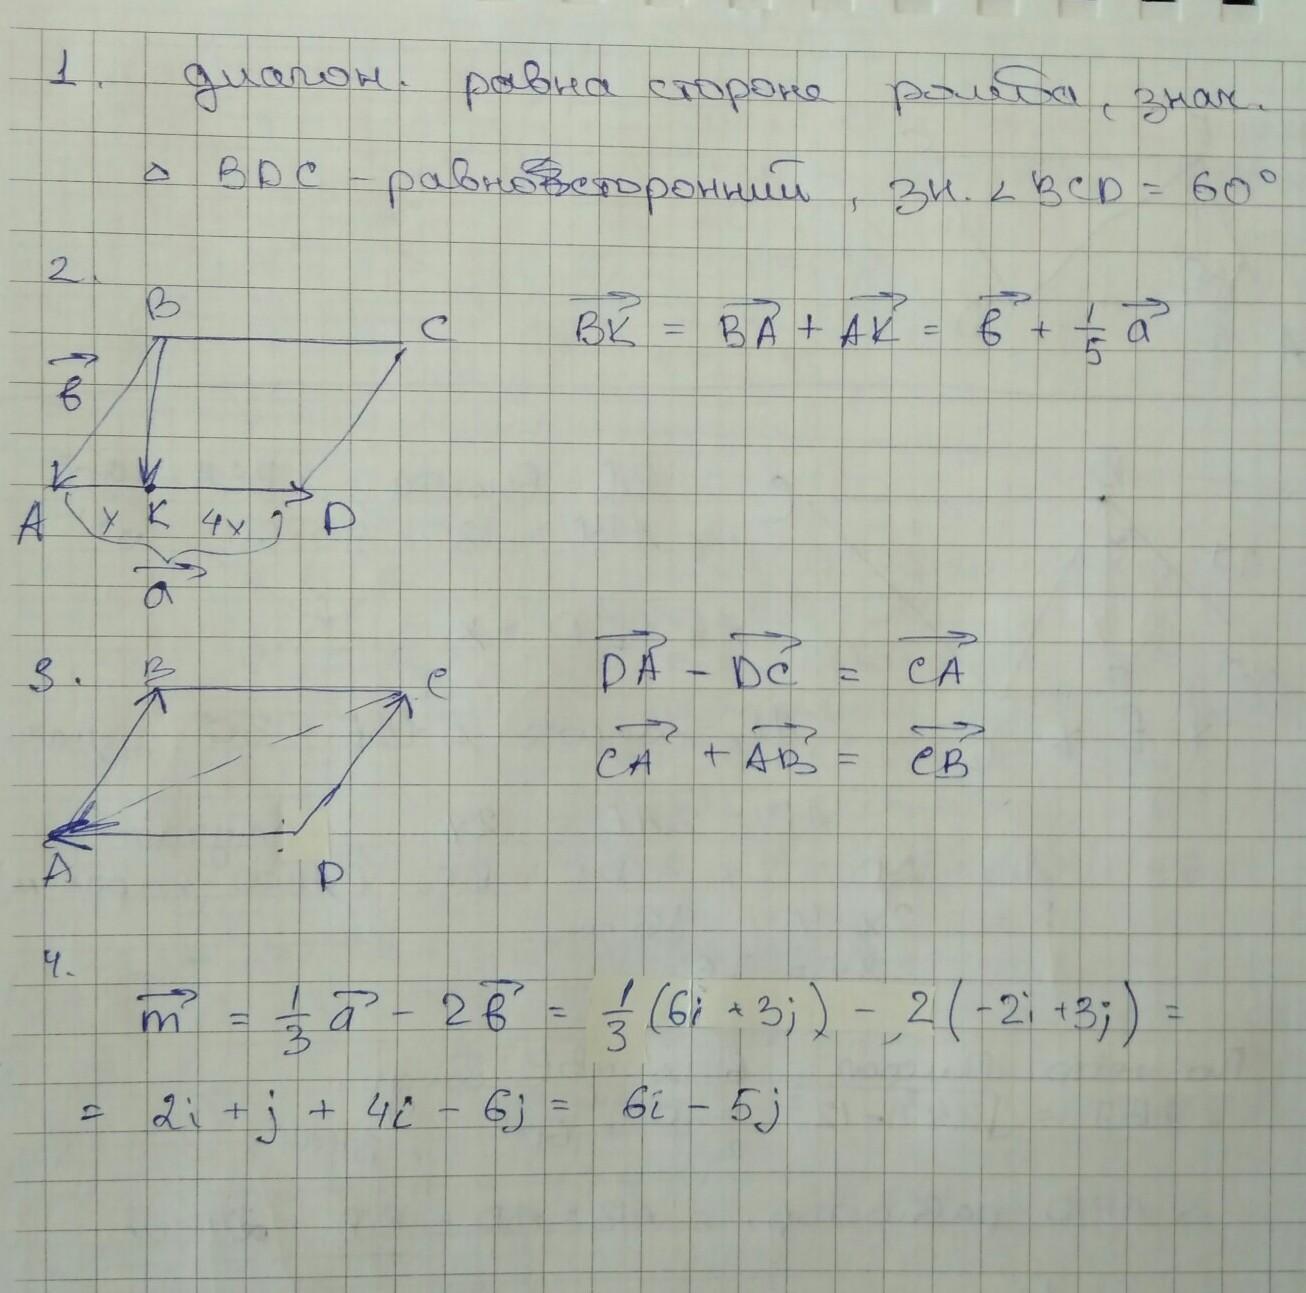 1. диагон. равна стороне ромба, знач.
△ BDC - равносторонний, зн. ∠ BCD = 60°
2.
B
C
в⃗
BK⃗ = BA⃗ + AK⃗ = в⃗ + 1/5 a⃗
A x K 4x D
a⃗
3. B C
DA⃗ - DC⃗ = CA⃗
CA⃗ + AB⃗ = CB⃗
A D
4.
m⃗ = 1/3 a⃗ - 2в⃗ = 1/3 (6i + 3j) - 2(-2i + 3j) =
= 2i + j + 4i - 6j = 6i - 5j